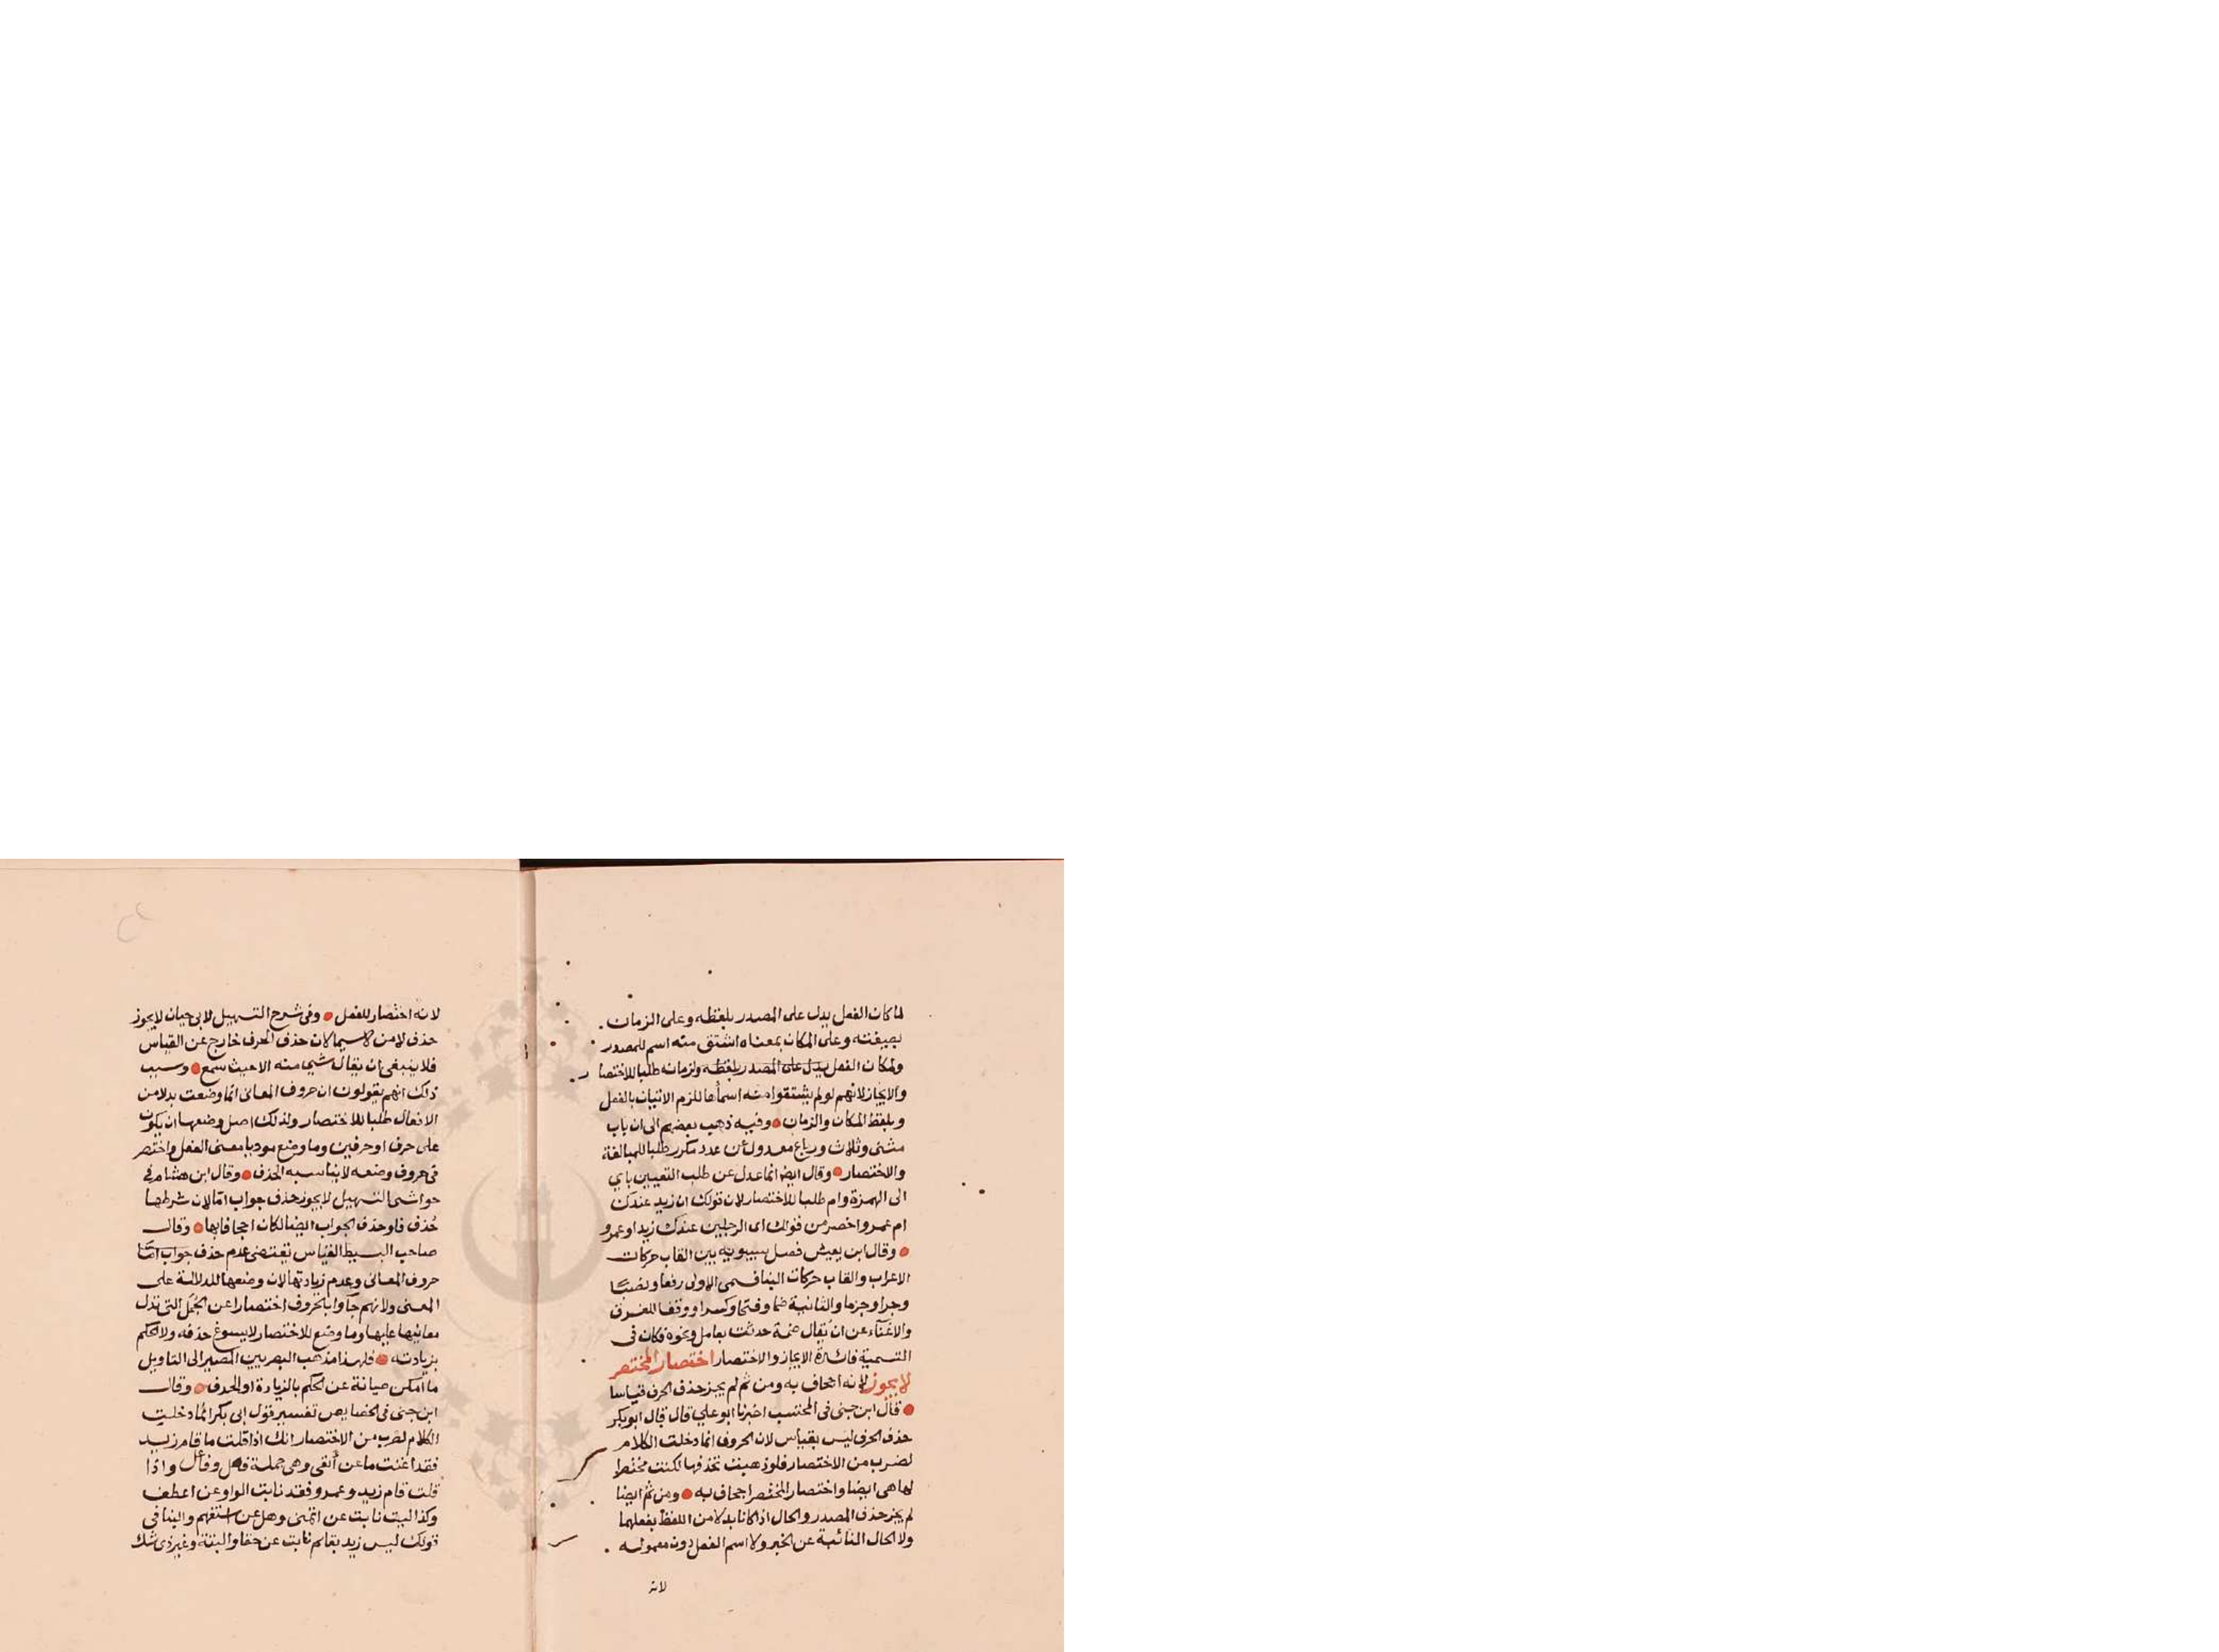 لما كان الفعل يدل على المصدر بلفظه وعلى الزمان
بصيغته وعلى المكان بمعناه اشتق منه اسم للمصدر
ولمكان الفعل يدل على المصدر بلفظه ولزمانه طلبا للاختصار
والايجاز لانهم لو لم يشتقوا منه اسماها للزم الاتيان بالفعل
وبلفظ المكان والزمان وفيه ذهب بعضهم الى ان باب
مثنى وثلاث ورباع معدول عن عدد مكرر طلبا للمبالغة
والاختصار وقال ايضا انما عدل عن طلب التعيين باي
الى الهمزة وام طلبا للاختصار لان قولك ان زيد عندك
ام عمرو اخصر من قولك اى الرجلين عندك زيد او عمرو
وقال ابن يعيش فصل سيبويه بين القاب حركات
الاعراب والقاب حركات البنا فسمى الاول رفعا ونصبًا
وجرا وجزما والثانية ضما وفتحا وكسرا ووقفا للفرق
والاغنآء عن ان يقال ضمة حدثت بعامل ونحوه فكان فى
التسمية فائدة الايجاز والاختصار اختصار المختصر
لا يجوز لانه اجحاف به ومن ثم لم يجز حذف الحرف قياسا
قال ابن جنى فى المحتسب اخبرنا ابو علي قال قال ابو بكر
حذف الحرف ليس بقياس لان الحروف انما دخلت الكلام
لضرب من الاختصار فلو ذهبت تحذفها لكنت مختصرا
لها هى ايضا واختصار المختصر اجحاف به ومن ثم ايضا
لم يجز حذف المصدر والحال اذا كانا بدلا من اللفظ بفعلهما
ولا الحال النائبة عن الخبر ولا اسم الفعل دون معموله
لانه
لانه اختصار للفعل وفى شرح التسهيل لابى حيان لا يجوز
حذف لا من لا سيما لان حذف الحرف خارج عن القياس
فلا ينبغى ان يقال شيا منه الا حيث سمع وسبب
ذلك انهم يقولون ان حروف المعانى انما وضعت بدلا من
الافعال طلبا للاختصار ولذلك اصل وضعها ان يكون
على حرف او حرفين وما وضع موديا معنى الفعل واختصر
فى حروف وضعه لا يناسبه الحذف وقال ابن هشام فى
حواشى التسهيل لا يجوز حذف جواب امّا لان شرطها
حُذف فلو حذف الجواب ايضا لكان اجحافا بها وقال
صاحب البسيط القياس يقتضى عدم حذف جواب امّا
حروف المعانى وعدم زيادتها لان وضعها للدلالة على
المعنى ولانهم جآوا بالحروف اختصارا عن الجُمَل التى تدل
معانيها عليها وما وضع للاختصار لا يسوغ حذفه ولا الحكم
بزيادته فلهذا مذهب البصريين المصير الى التاويل
ما امكن صيانة عن الحكم بالزيادة او الحذف وقال
ابن جنى فى الخصايص تفسير قول ابى بكر انما دخلت
الكلام لضرب من الاختصار انك اذا قلت ما قام زيد
فقد اغنت ما عن أنفى وهى جملة فعل وفاعل واذا
قلت قام زيد وعمرو فقد نابت الواو عن اعطف
وكذا ليت نابت عن اتمنى وهل عن استفهم والبا فى
قولك ليس زيد بقايم نابت عن حقا والبتة وغير ذى شك